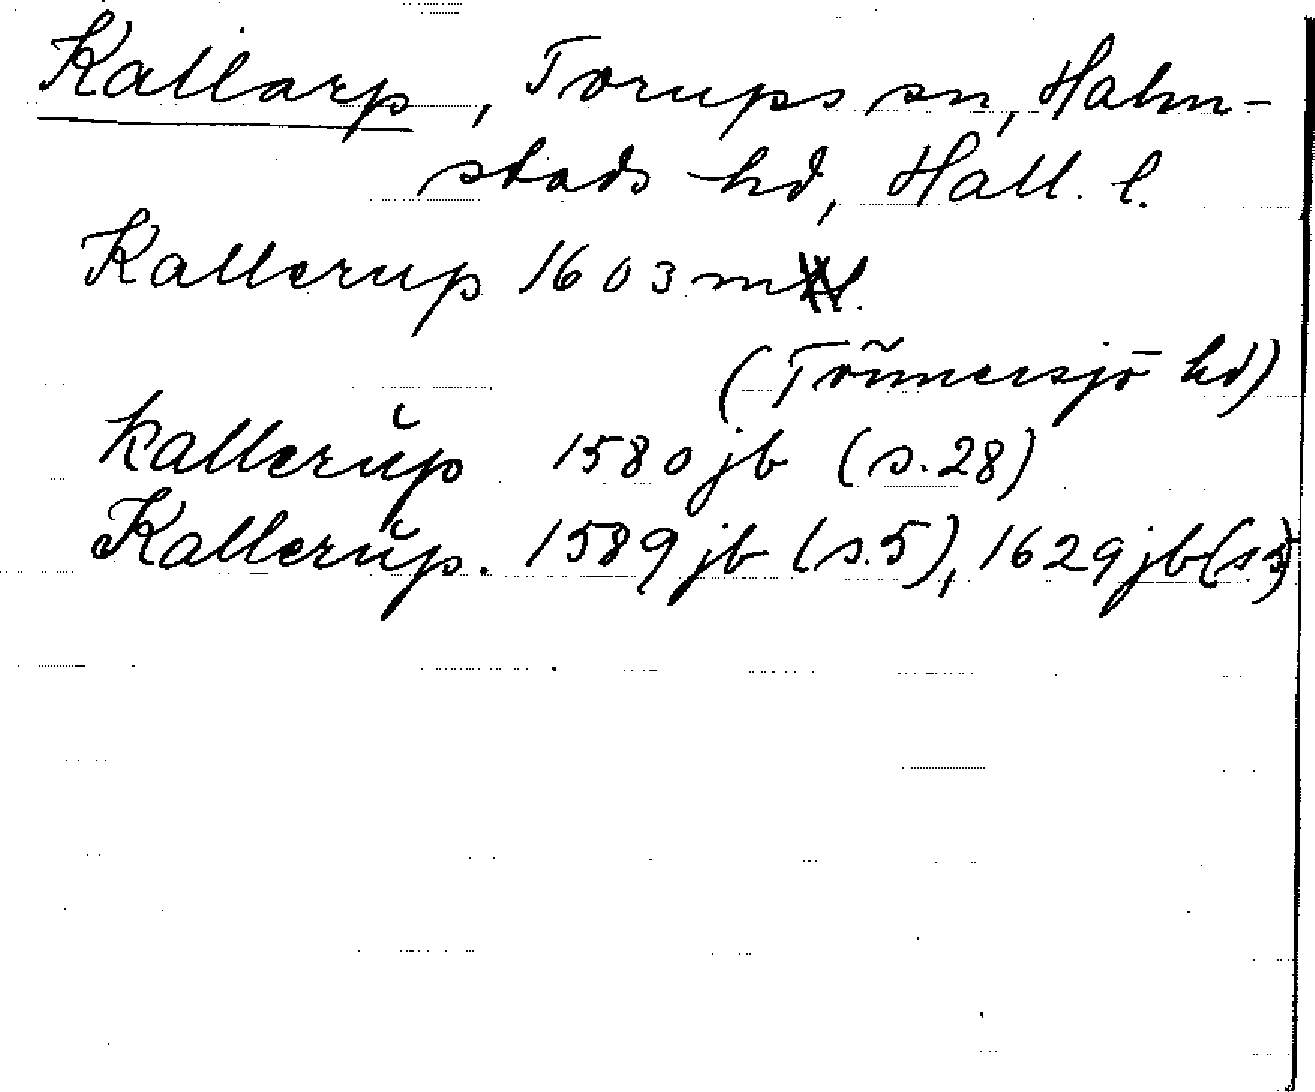 Kallarp, Torups sn, Halm-
stads hd, Hall. l.
Kallerup 1603 ml.
(Tönnersjö hd)
kallerŭp 1580 jb (s. 28)
Kallerŭp. 1589 jb (s. 5), 1629 jb